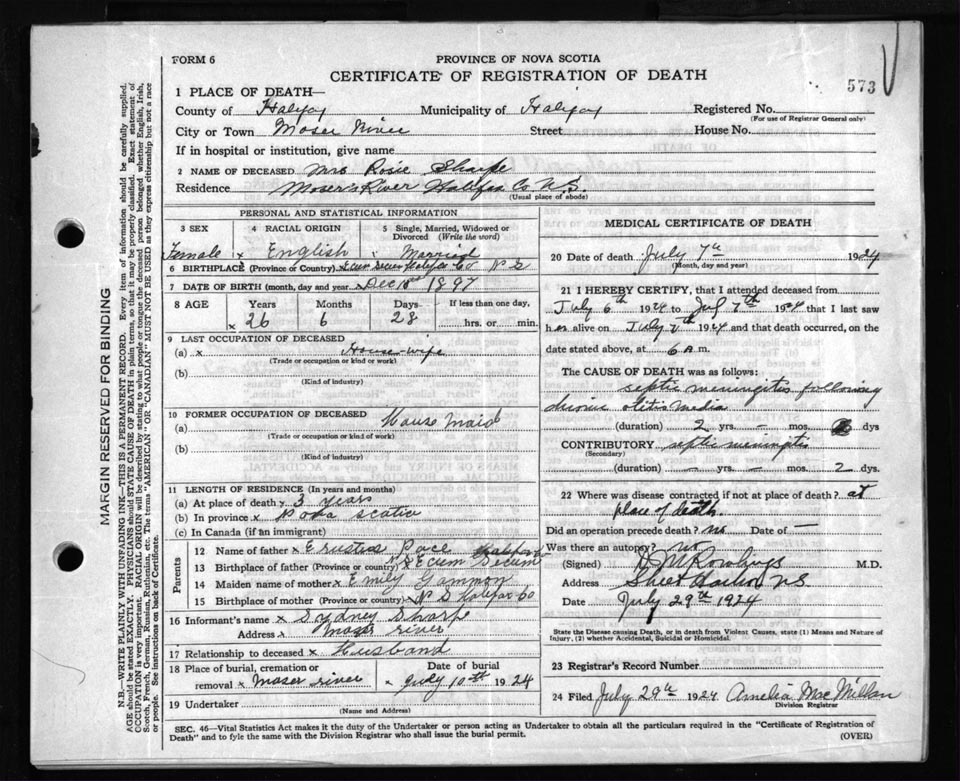 FORM 6
PROVINCE OF NOVA SCOTIA
CERTIFICATE OF REGISTRATION OF DEATH
573
1 PLACE OF DEATH—
County of Halifax Municipality of Halifax Registered No.
(For use of Registrar General only)
City or Town Moser River Street House No.
If in hospital or institution, give name
2 NAME OF DECEASED Mrs Rosie Sharpe
Residence Moser's River Halifax Co. N.S.
(Usual place of abode)
PERSONAL AND STATISTICAL INFORMATION
3 SEX 4 RACIAL ORIGIN 5 Single, Married, Widowed or Divorced (Write the word)
Female x English Married
6 BIRTHPLACE (Province or Country) Ecum Secum Halifax Co N S
7 DATE OF BIRTH (month, day and year) x Dec 10 1897
8 AGE Years Months Days If less than one day,
x 26 6 28 hrs. or min.
9 LAST OCCUPATION OF DECEASED
(a) x House wife
(Trade or occupation or kind or work)
(b)
(Kind of industry)
10 FORMER OCCUPATION OF DECEASED
(a) House Maid
(Trade or occupation or kind of work)
(b)
(Kind of industry)
11 LENGTH OF RESIDENCE (In years and months)
(a) At place of death 3 years
(b) In province x Nova Scotia
(c) In Canada (if an immigrant)
Parents
12 Name of father x Erustus Pace
13 Birthplace of father (Province or country) x Ecum Secum Halifax
14 Maiden name of mother x Emily Gammon
15 Birthplace of mother (Province or country) x N S Halifax Co
16 Informant's name x Sydney Sharpe
Address x Moser river
17 Relationship to deceased x Husband
18 Place of burial, cremation or removal x Moser river Date of burial x July 10th 1924
19 Undertaker
(Name and Address)
MEDICAL CERTIFICATE OF DEATH
20 Date of death July 7th 1924
(Month, day and year)
21 I HEREBY CERTIFY, that I attended deceased from
July 6th 1924 to July 7th 1924 that I last saw
h er alive on July 7th 1924 and that death occurred, on the
date stated above, at 6 A m.
The CAUSE OF DEATH was as follows:
septic meningitis following
chronic otitis media
(duration) 2 yrs. – mos. dys
CONTRIBUTORY septic meningitis
(Secondary)
(duration) – yrs. – mos. 2 dys.
22 Where was disease contracted if not at place of death? at
place of death
Did an operation precede death? no Date of —
Was there an autopsy? no
(Signed) Rowlings M.D.
Address Sheet Harbour N S
Date July 29th 1924
State the Disease causing Death, or in death from Violent Causes, state (1) Means and Nature of
Injury, (2) whether Accidental, Suicidal or Homicidal.
23 Registrar's Record Number
24 Filed July 29th 1924 Amelia MacMillan
Division Registrar
SEC. 46—Vital Statistics Act makes it the duty of the Undertaker or person acting as Undertaker to obtain all the particulars required in the "Certificate of Registration of
Death" and to fyle the same with the Division Registrar who shall issue the burial permit.
(OVER)
MARGIN RESERVED FOR BINDING
N.B.—WRITE PLAINLY WITH UNFADING INK—THIS IS A PERMANENT RECORD. Every item of information should be carefully supplied.
AGE should be stated EXACTLY. PHYSICIANS should STATE CAUSE OF DEATH in plain terms, so that it may be properly classified. Exact statement of
OCCUPATION is very important. RACIAL ORIGIN will be described by stating to what people or tongue the deceased person belonged whether English, Irish,
Scotch, French, German, Russian, Ruthenian, etc. The terms "AMERICAN" OR "CANADIAN" MUST NOT BE USED as they express citizenship but not a race
or people. See instructions on back of Certificate.